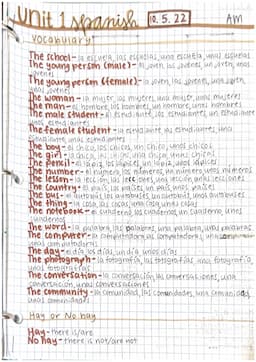 Unit 1 spanish 10.5.22 AM
Vocabulary
The school - la escuela, las escuelas, una escuela, unas escuelas
The young person (male) - el joven, los jovenes, un joven, unos
jovenes
The young person (female) - la joven, las jovenes, una joven,
unas jovenes
The woman - la mujer, las mujeres, una mujer, unas mujeres
The man - el hombre, los hombres, un hombre, unos hombres
The male student - el estudiante, los estudiantes, un estudiante
unos estudiantes
The female student - la estudiante, las estudiantes, una
estudiante, unas estudiantes
The boy - el chico, los chicos, un chico, unos chicos
The girl - la chica, las chicas, una chica, unas chicas
The pencil - el lápiz, los lápices, un lápiz, unos lápices
The number - el número, los números, un número, unos números
The lesson - la lección, las lecciones, una lección, unas lecciones
The country - el país, los países, un país, unos países
The bus - el autobús, los autobuses, un autobús, unos autobuses
The thing - la cosa, las cosas, una cosa, unas cosas
The notebook - el cuaderno, los cuadernos, un cuaderno, unos
cuadernos
The word - la palabra, las palabras, una palabra, unas palabras
The computer - la computadora, las computadoras, una
computadora
The day - el día, los días, un día, unos días
The photograph - la fotografía, las fotografías, una fotografía,
unas fotografías
The conversation - la conversación, las conversaciones, una
conversación, unas conversaciones
The community - la comunidad, las comunidades, una comunidad,
unas comunidades
Hay or No hay
Hay - there is/are
No hay - there is not/are not